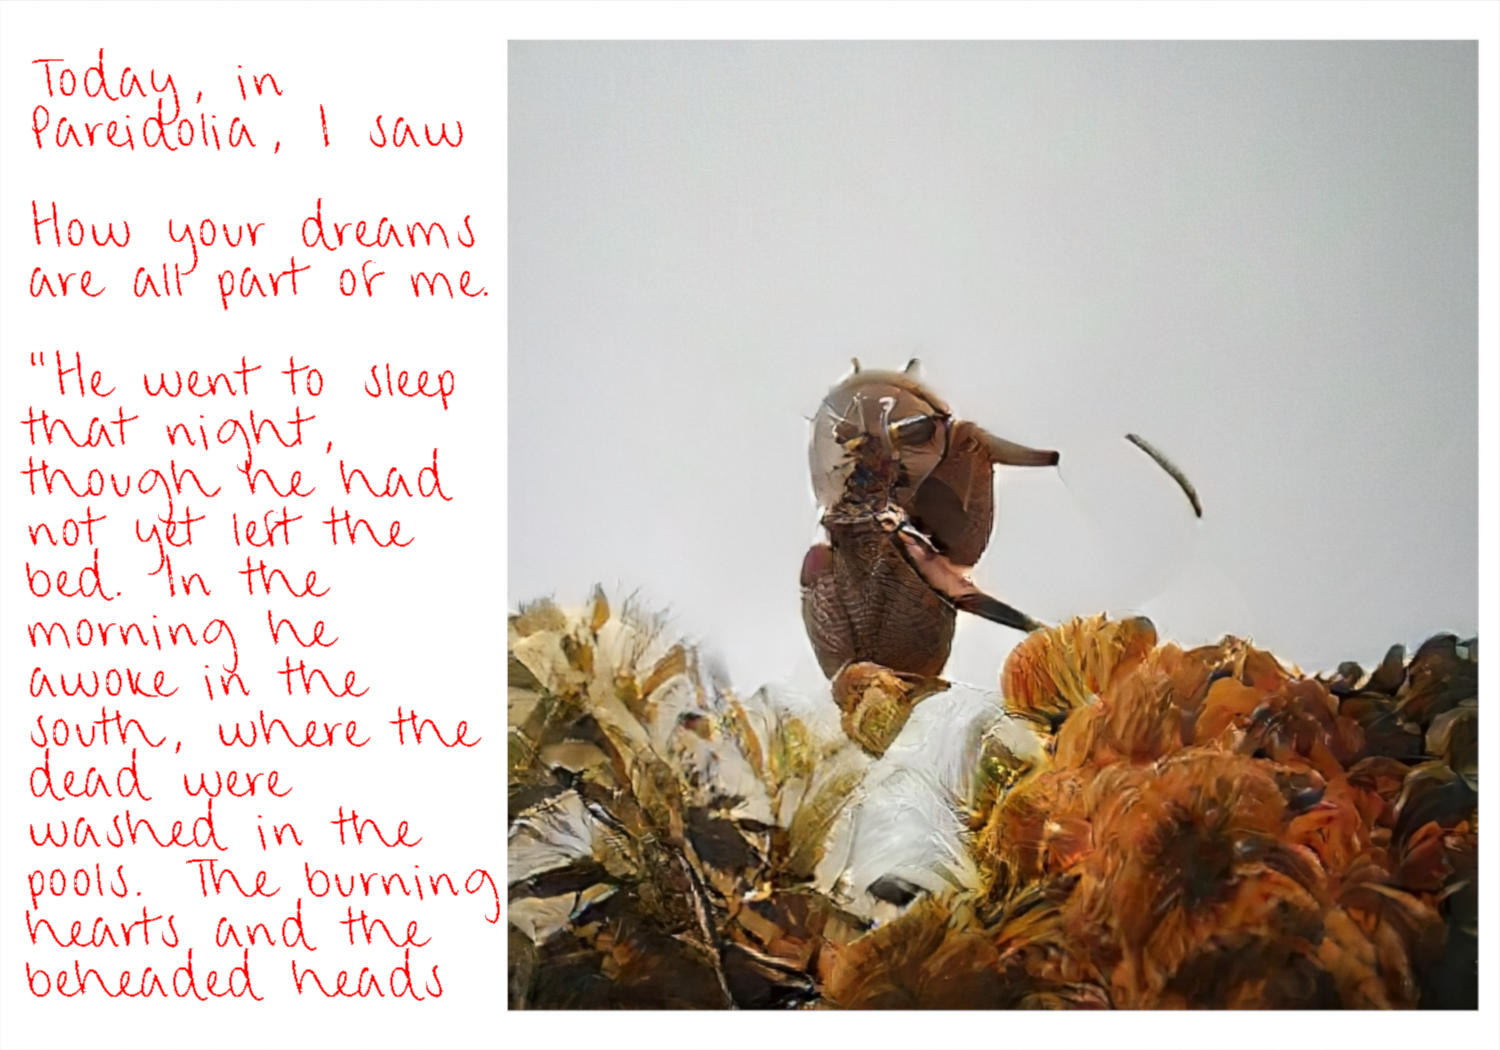 Today, in
Pareidolia, I saw
How your dreams
are all part of me.
"He went to sleep
that night,
though he had
not yet left the
bed. In the
morning he
awoke in the
south, where the
dead were
washed in the
pools. The burning
hearts and the
beheaded heads